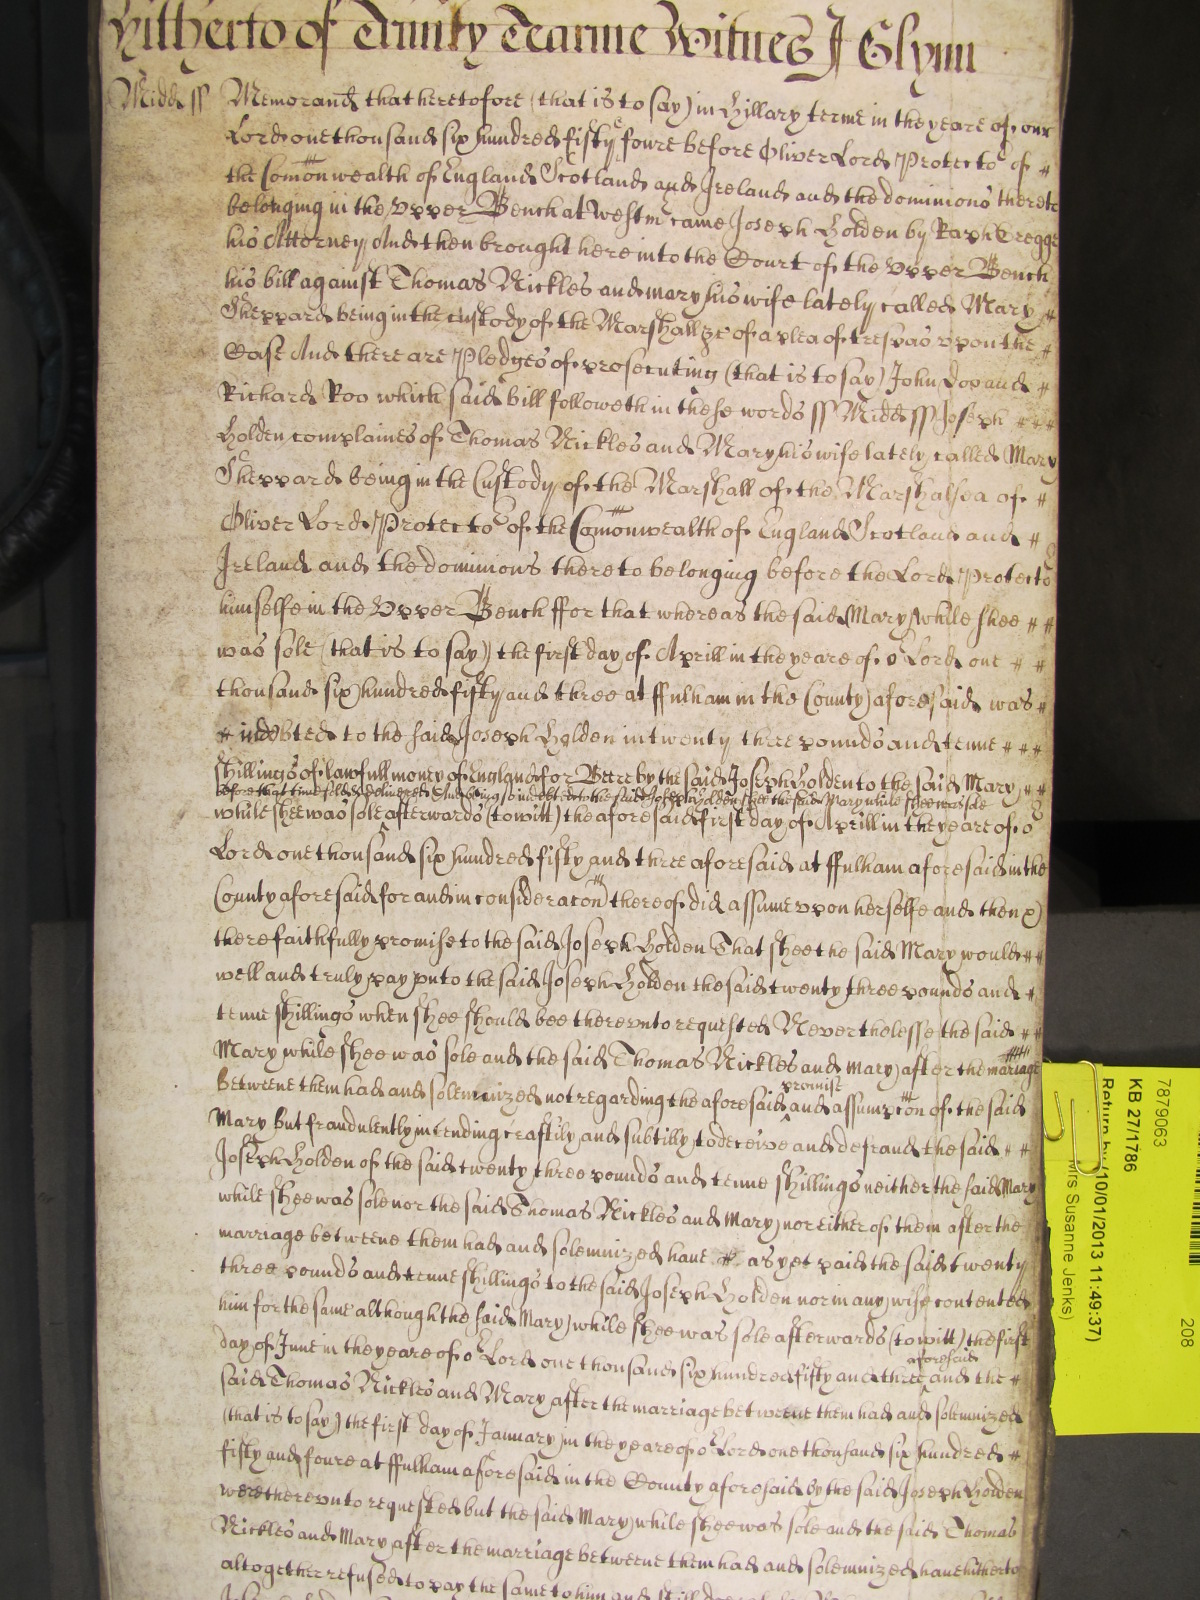 hitherto of Trinity Tearme Witnes J Glynn
Midds ss Memorand that heretofore (that is to say) in Hillary terme in the yeare of our
Lord one thousand six hundred fifty foure before Oliver Lord Protector of
the Comonwealth of England Scotland and Ireland and the dominions thereto
belonging in the Upper Bench at Westm came Joseph Holden by Raph
his Attorney And then brought here into the Court of the Upper Bench
his bill against Thomas Nickles and Mary his wife lately called Mary
Sheppard being in the custody of the Marshall &c of a plea of trespas upon the
Case And there are Pledges of prosecuting (that is to say) John Doo and
Richard Roo which said bill followeth in these words ss Midds ss Joseph
Holden complaines of Thomas Nickles and Mary his wife lately called Mary
Sheppard being in the Custody of the Marshall of the Marshalsea of
Oliver Lord Protector of the Comonwealth of England Scotland and
Ireland and the dominions thereto belonging before the Lord Protector
himselfe in the Upper Bench ffor that whereas the said Mary while shee
was sole (that is to say) the first day of Aprill in the yeare of or Lord one
thousand six hundred fifty and three at ffulham in the County aforesaid was
indebted to the said Joseph Holden in twenty three pounds and tenne
shillings of lawfull money of England for Beere by the said Joseph Holden to the said Mary
before that time sold & delivered And being so indebted to the said Joseph Holden shee the said Mary while shee was sole
while shee was sole afterwards (to witt) the aforesaid first day of Aprill in the yeare of or
Lord one thousand six hundred fifty and three aforesaid at ffulham aforesaid in the
County aforesaid for and in consideracon thereof did assume upon herselfe and then &
there faithfully promise to the said Joseph Holden That shee the said Mary would
well and truly pay unto the said Joseph Holden the said twenty three pounds and
tenne shillings when shee should bee thereunto requested Neverthelesse the said
Mary while shee was sole and the said Thomas Nickles and Mary after the mariage
betweene them had and solemnized not regarding the aforesaid promise and assumpcon of the said
Mary but fraudulently intending craftily and subtilly to deceive and defraud the said
Joseph Holden of the said twenty three pounds and tenne shillings neither the said Mary
while shee was sole nor the said Thomas Nickles and Mary nor either of them after the
marriage betweene them had and solemnized have as yet paid the said twenty
three pounds and tenne shillings to the said Joseph Holden nor any wise contented
him for the same although the said Mary while shee was sole afterwards (to witt) the first
day of June in the yeare of or Lord one thousand six hundred fifty and three aforesaid and the
said Thomas Nickles and Mary after the marriage betweene them had and solemnized
(that is to say) the first day of January in the yeare of or Lord one thousand six hundred
fifty and foure at ffulham aforesaid in the County aforesaid by the said Joseph Holden
were thereunto requested but the said Mary while shee was sole and the said Thomas
Nickles and Mary after the marriage betweene them had and solemnized have hitherto
altogether refused to pay the same to him and still
7879063
KB 27/1786
Return by (10/01/2013 11:49:37)
Mrs Susanne Jenks)
208